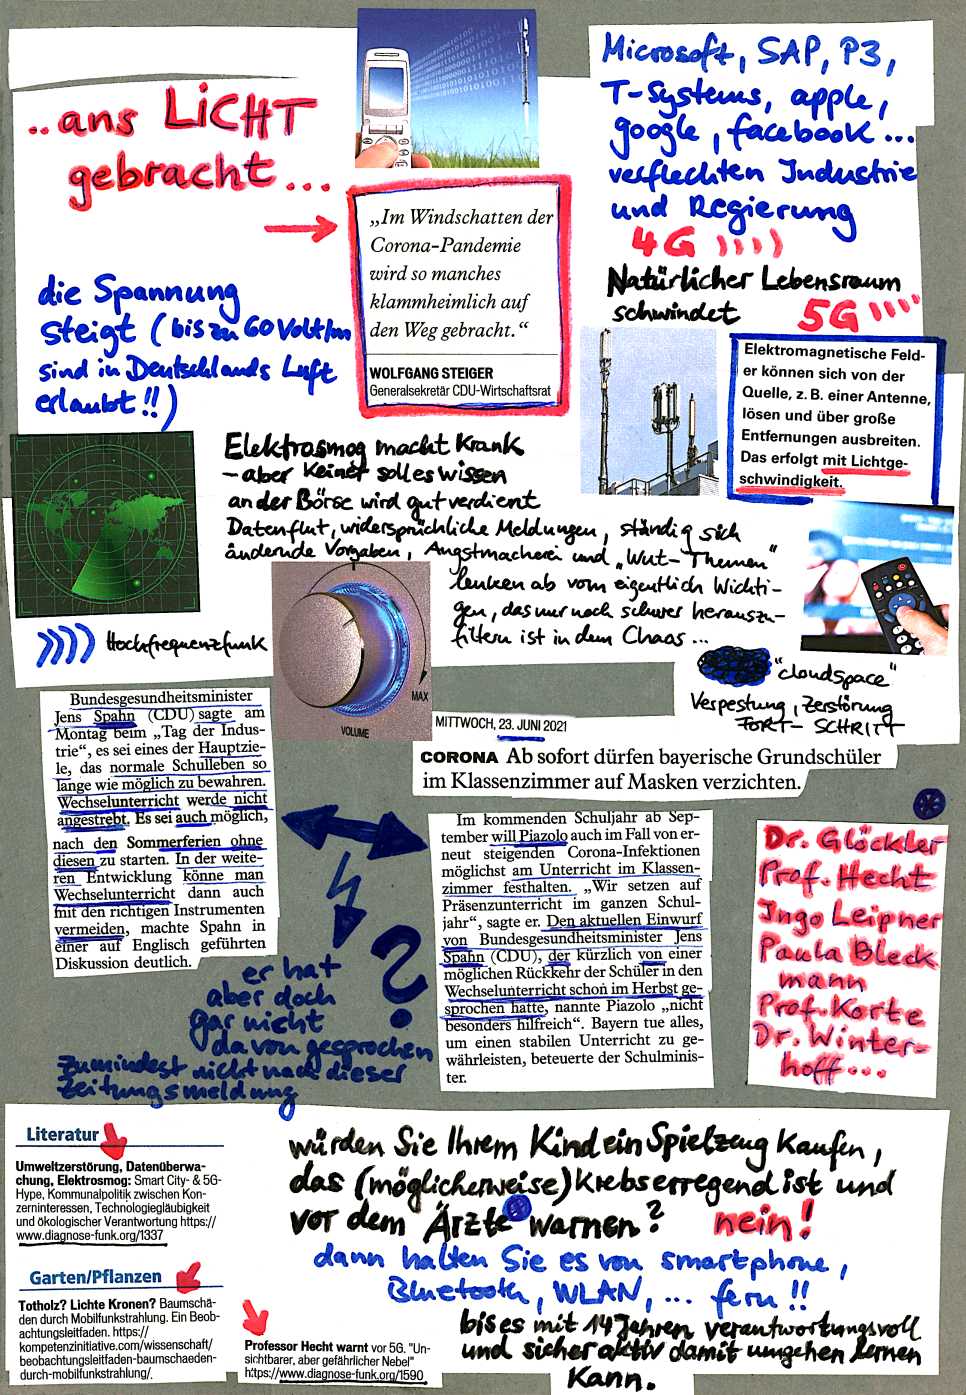 ..ans LiCHT
gebracht...
Microsoft, SAP, P3,
T-Systems, apple,
google, facebook...
verflechten Industrie
und Regierung
4G
Natürlicher Lebensraum
schwindet
5G
„Im Windschatten der
Corona-Pandemie
wird so manches
klammheimlich auf
den Weg gebracht.“
WOLFGANG STEIGER
Generalsekretär CDU-Wirtschaftsrat
die Spannung
steigt (bis zu 60 Volt/m
sind in Deutschlands Luft
erlaubt!!)
Elektromagnetische Feld-
er können sich von der
Quelle, z. B. einer Antenne,
lösen und über große
Entfernungen ausbreiten.
Das erfolgt mit Lichtge-
schwindigkeit.
Elektrosmog macht Krank
- aber Keiner soll es wissen
an der Börse wird gut verdient
Datenflut, widersprüchliche Meldungen, ständig sich
ändernde Vorgaben, Angstmacherei und „Wut-Themen"
lenken ab vom eigentlich Wichti-
gen, das nur noch schwer herauszu-
filtern ist in dem Chaos...
Hochfrequenzfunk
MAX
VOLUME
"cloudspace"
Verpestung, Zerstörung
FORT-SCHRITT
Bundesgesundheitsminister
Jens Spahn (CDU) sagte am
Montag beim „Tag der Indus-
trie“, es sei eines der Hauptzie-
le, das normale Schulleben so
lange wie möglich zu bewahren.
Wechselunterricht werde nicht
angestrebt. Es sei auch möglich,
nach den Sommerferien ohne
diesen zu starten. In der weite-
ren Entwicklung könne man
Wechselunterricht dann auch
mit den richtigen Instrumenten
vermeiden, machte Spahn in
einer auf Englisch geführten
Diskussion deutlich.
MITTWOCH, 23. JUNI 2021
CORONA Ab sofort dürfen bayerische Grundschüler
im Klassenzimmer auf Masken verzichten.
Im kommenden Schuljahr ab Sep-
tember will Piazolo auch im Fall von er-
neut steigenden Corona-Infektionen
möglichst am Unterricht im Klassen-
zimmer festhalten. „Wir setzen auf
Präsenzunterricht im ganzen Schul-
jahr“, sagte er. Den aktuellen Einwurf
von Bundesgesundheitsminister Jens
Spahn (CDU), der kürzlich von einer
möglichen Rückkehr der Schüler in den
Wechselunterricht schon im Herbst ge-
sprochen hatte, nannte Piazolo „nicht
besonders hilfreich“. Bayern tue alles,
um einen stabilen Unterricht zu ge-
währleisten, beteuerte der Schulminis-
ter.
Dr. Glöckler
Prof. Hecht
Ingo Leipner
Paula Bleck
mann
Prof. Korte
Dr. Winter-
hoff...
?
er hat
aber doch
gar nicht
davon gesprochen
Zumindest nicht nach dieser
Zeitungsmeldung
Literatur
Umweltzerstörung, Datenüberwa-
chung, Elektrosmog: Smart City- & 5G-
Hype, Kommunalpolitik zwischen Kon-
zerninteressen, Technologiegläubigkeit
und ökologischer Verantwortung https://
www.diagnose-funk.org/1337
Garten/Pflanzen
Totholz? Lichte Kronen? Baumschä-
den durch Mobilfunkstrahlung. Ein Beob-
achtungsleitfaden. https://
kompetenzinitiative.com/wissenschaft/
beobachtungsleitfaden-baumschaeden-
durch-mobilfunkstrahlung/.
Professor Hecht warnt vor 5G. "Un-
sichtbarer, aber gefährlicher Nebel"
https://www.diagnose-funk.org/1590
würden Sie Ihrem Kind ein Spielzeug Kaufen,
das (möglicherweise) Krebserregend ist und
vor dem Ärzte warnen? nein!
dann halten Sie es von smartphone,
Bluetooth, WLAN, ... fern!!
bis es mit 14 Jahren verantwortungsvoll
und sicher aktiv damit umgehen lernen
Kann.